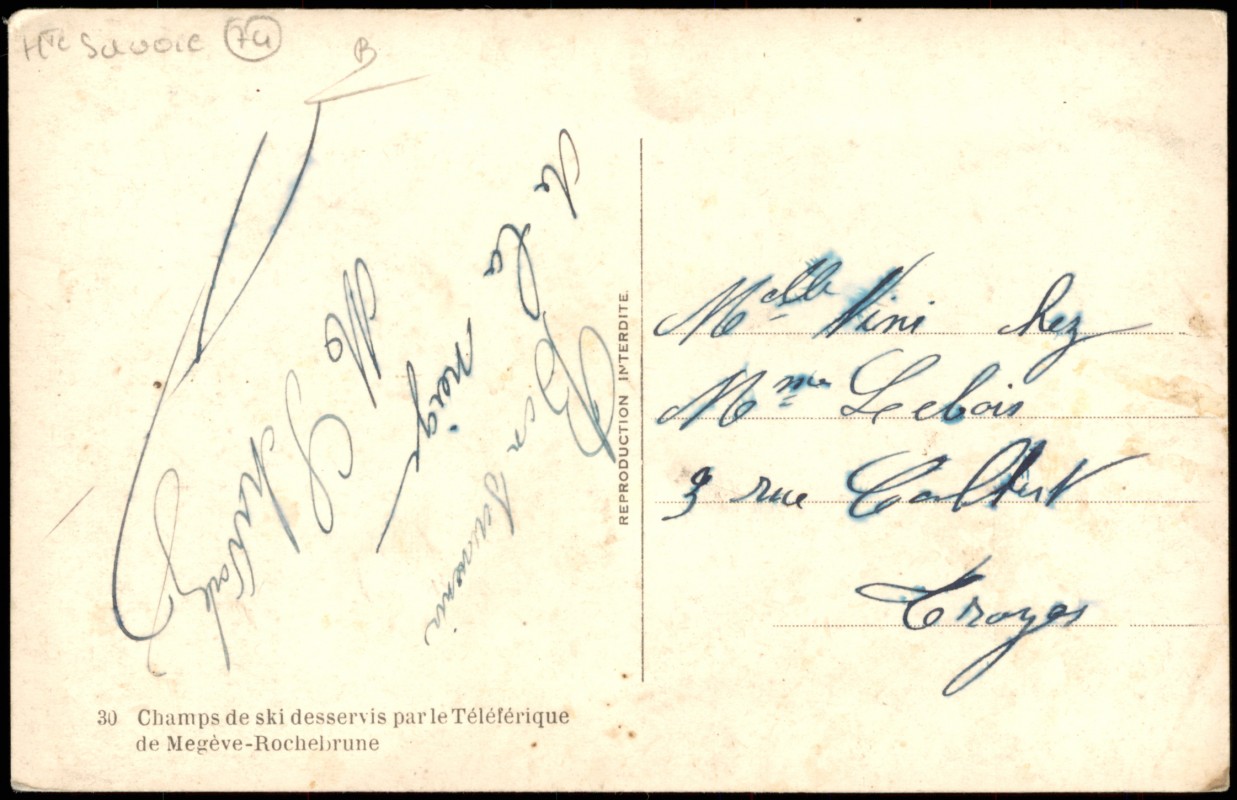 Hte Savoie 74
B
Bon Souvenir
de la neige
Melle Nini chez
Mme Lebois
3 rue
Troyes
REPRODUCTION INTERDITE
30 Champs de ski desservis par le Téléférique
de Megève-Rochebrune